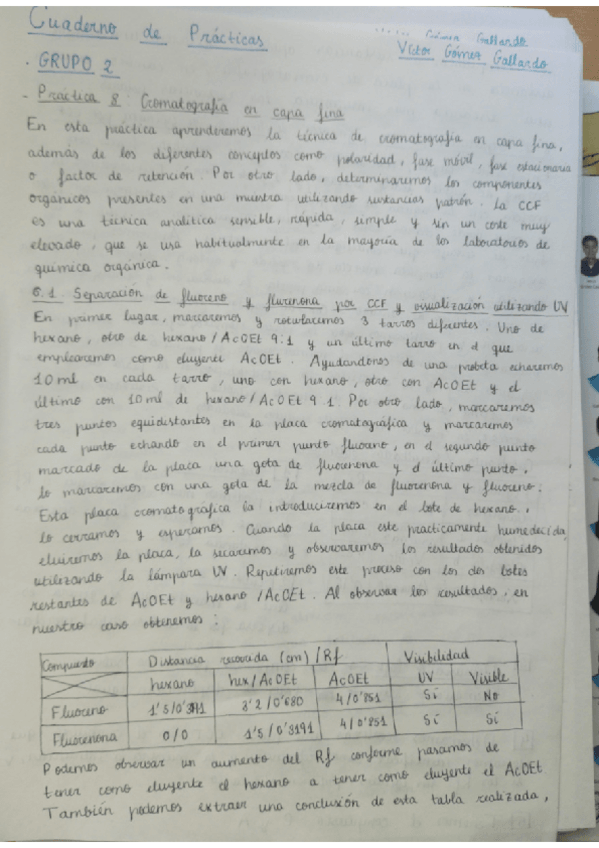 Cuaderno de Prácticas
Gómez Gallardo
Víctor Gómez Gallardo
· GRUPO 2
- Práctica 8 Cromatografía en capa fina
En esta práctica aprenderemos la técnica de cromatografía en capa fina,
además de los diferentes conceptos como polaridad, fase móvil, fase estacionaria
o factor de retención. Por otro lado, determinaremos los componentes
orgánicos presentes en una muestra utilizando sustancias patrón. La CCF
es una técnica analítica sensible, rápida, simple y sin un coste muy
elevado, que se usa habitualmente en la mayoría de los laboratorios de
química orgánica.
6.1 Separación de fluoreno y flurenona por CCF y visualización utilizando UV
En primer lugar, marcaremos y rotularemos 3 tarros diferentes. Uno de
hexano, otro de hexano/AcOEt 9:1 y un último tarro en el que
emplearemos como eluyente AcOEt. Ayudandonos de una probeta echaremos
10 ml en cada tarro, uno con hexano, otro con AcOEt y el
último con 10 ml de hexano/AcOEt 9:1. Por otro lado, marcaremos
tres puntos equidistantes en la placa cromatográfica y marcaremos
cada punto echando en el primer punto fluoreno, en el segundo punto
marcado de la placa una gota de fluorenona y el último punto,
lo marcaremos con una gota de la mezcla de fluorenona y fluoreno.
Esta placa cromatográfica la introduciremos en el bote de hexano,
lo cerramos y esperamos. Cuando la placa este practicamente humedecida,
eluiremos la placa, la secaremos y observaremos los resultados obtenidos
utilizando la lámpara UV. Repetiremos este proceso con los dos botes
restantes de AcOEt y hexano/AcOEt. Al observar los resultados, en
nuestro caso obtenemos:
Compuesto Distancia recorrida (cm)/Rf Visibilidad
hexano hex/AcOEt AcOEt UV Visible
Fluoreno 3'2/0'680 4/0'851 Sí No
Fluorenona 0/0 1'5/0'3191 4/0'851 Sí Sí
Podemos observar un aumento del Rf conforme pasamos de
tener como eluyente el hexano a tener como eluyente el AcOEt.
También podemos extraer una conclusión de esta tabla realizada,